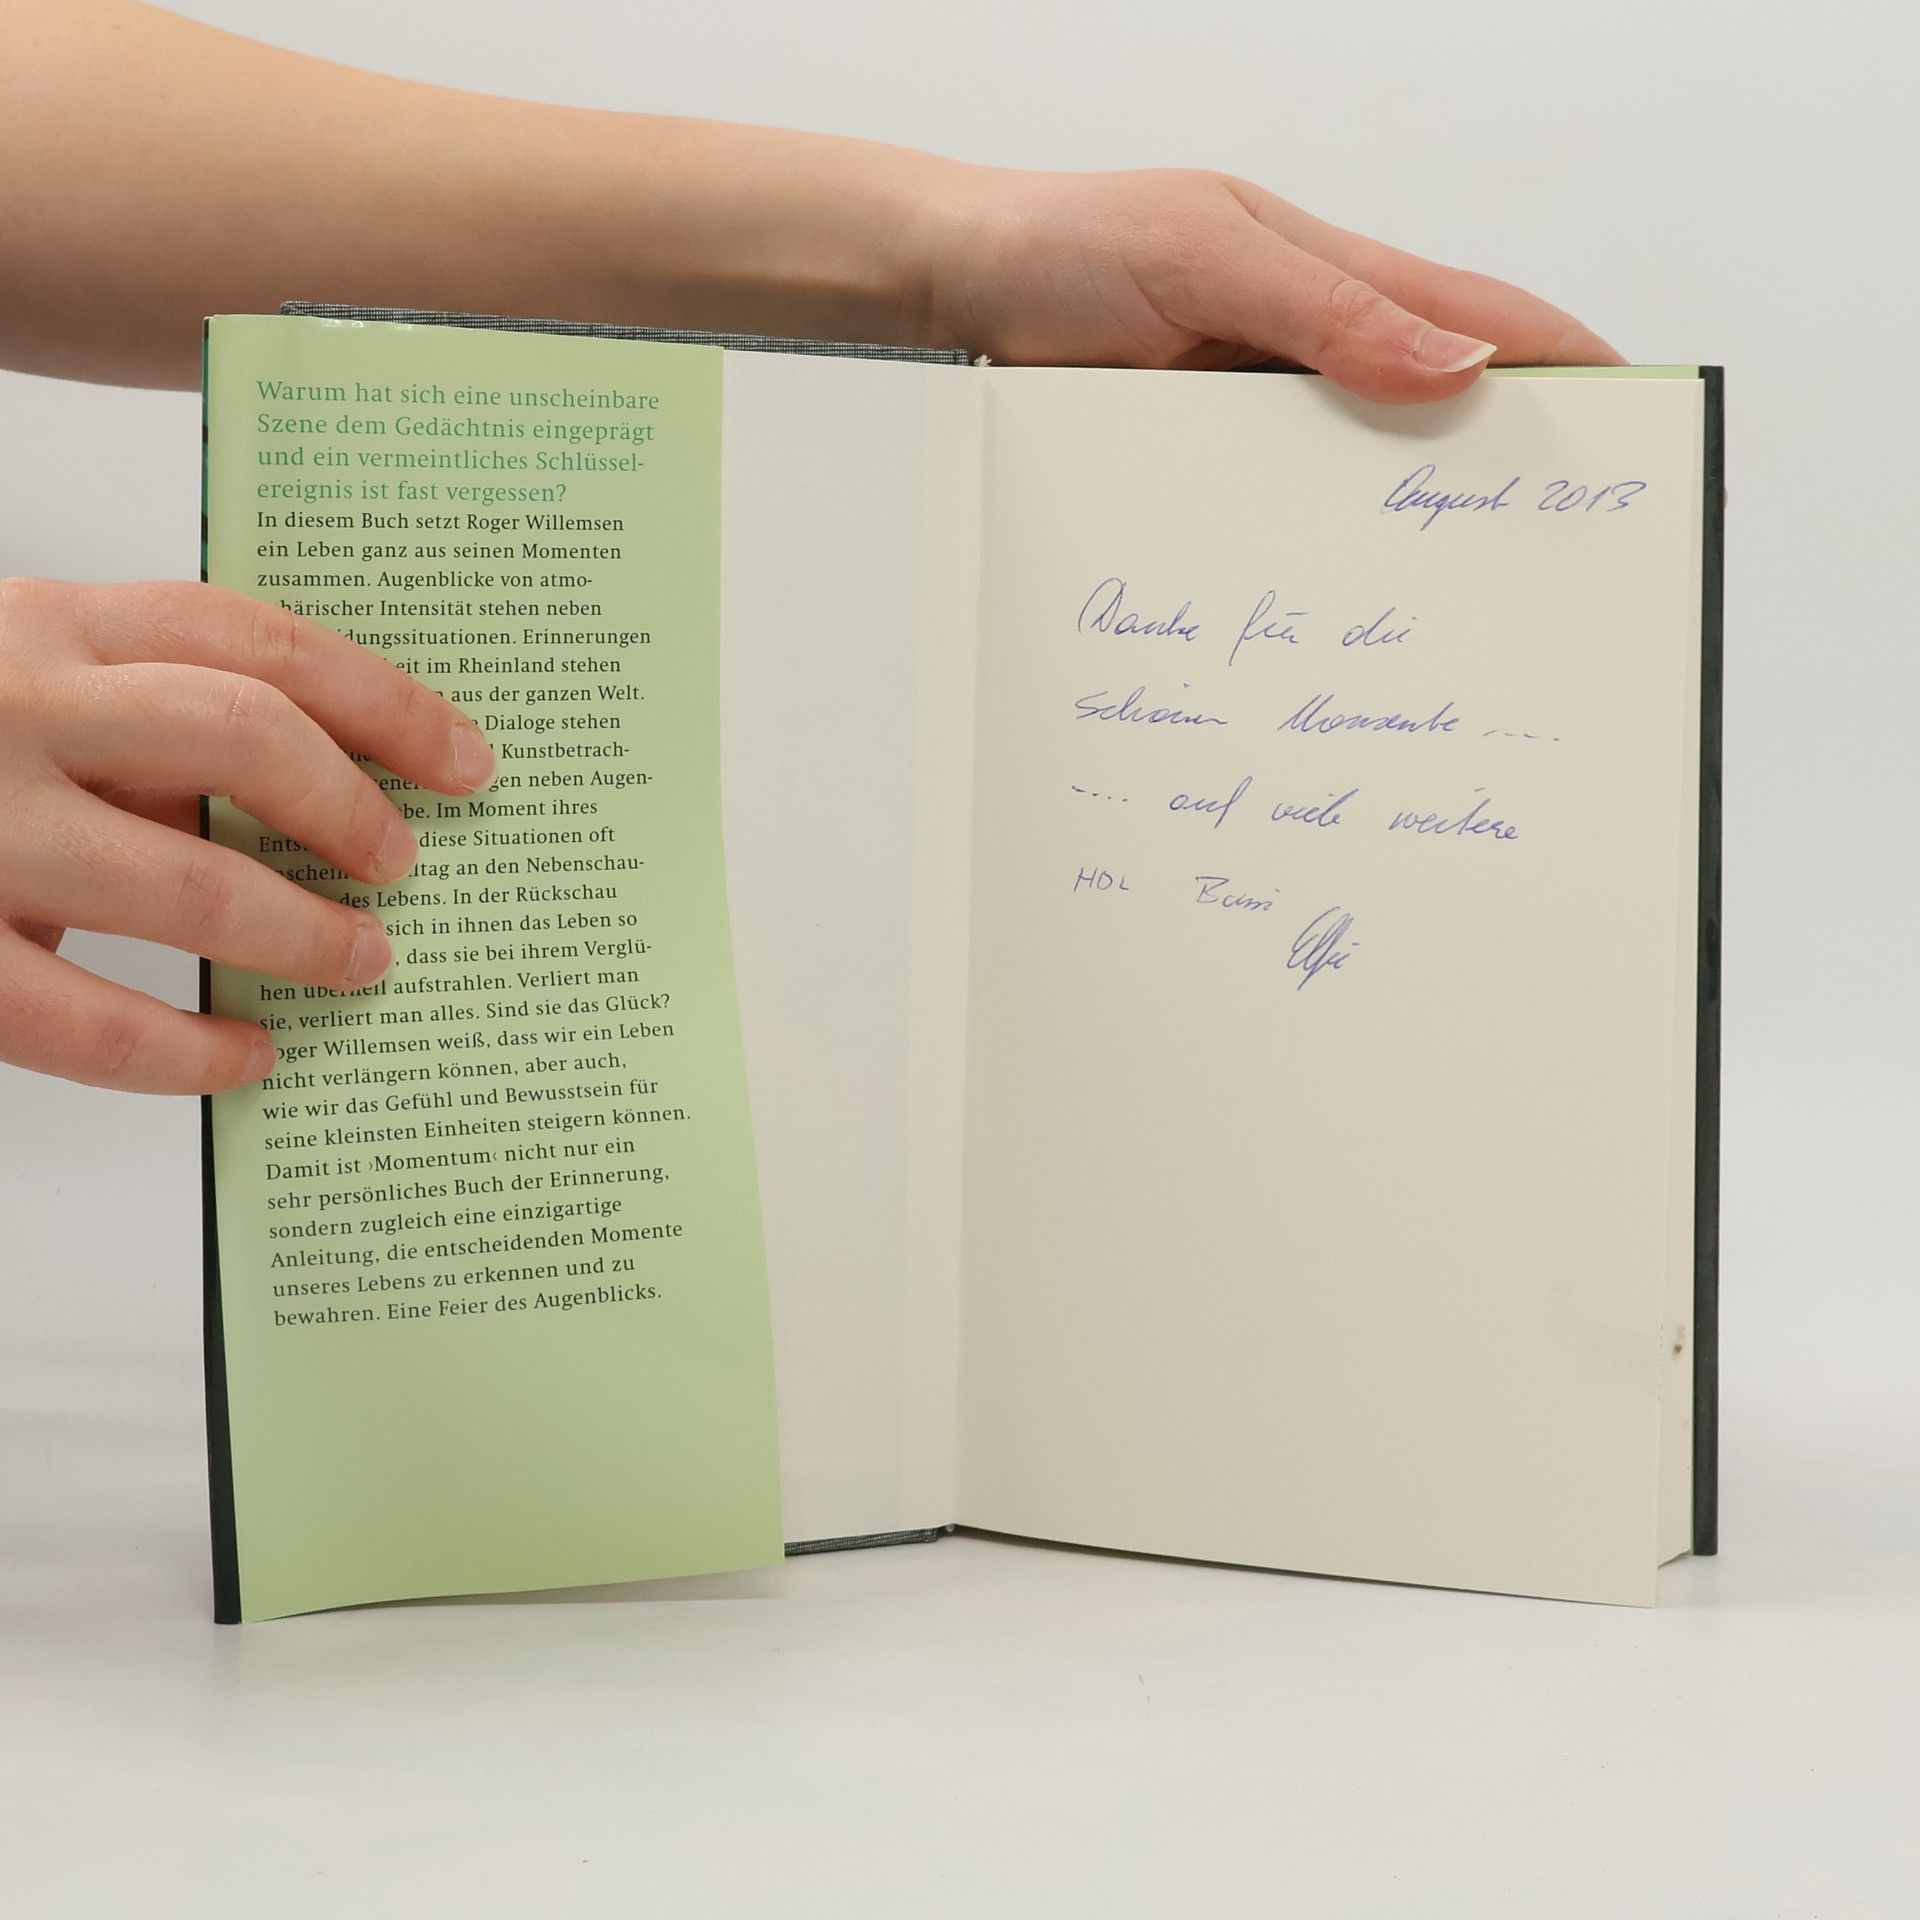 Warum hat sich eine unscheinbare
Szene dem Gedächtnis eingeprägt
und ein vermeintliches Schlüssel-
ereignis ist fast vergessen?
In diesem Buch setzt Roger Willemsen
ein Leben ganz aus seinen Momenten
zusammen. Augenblicke von atmo-
härischer Intensität stehen neben
dungssituationen. Erinnerungen
eit im Rheinland stehen
aus der ganzen Welt.
Dialoge stehen
Kunstbetrach-
gen neben Augen-
be. Im Moment ihres
Ents diese Situationen oft
nschein ltag an den Nebenschau-
des Lebens. In der Rückschau
sich in ihnen das Leben so
, dass sie bei ihrem Verglü-
hen überhell aufstrahlen. Verliert man
sie, verliert man alles. Sind sie das Glück?
oger Willemsen weiß, dass wir ein Leben
nicht verlängern können, aber auch,
wie wir das Gefühl und Bewusstsein für
seine kleinsten Einheiten steigern können.
Damit ist ›Momentum‹ nicht nur ein
sehr persönliches Buch der Erinnerung,
sondern zugleich eine einzigartige
Anleitung, die entscheidenden Momente
unseres Lebens zu erkennen und zu
bewahren. Eine Feier des Augenblicks.
August 2013
Danke für die
schönen Momente ....
.... auf viele weitere
HDL Bussi